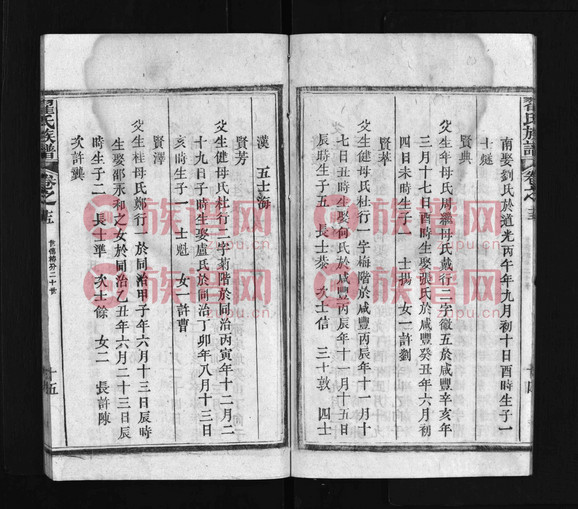 翟氏族譜
南娶劉氏於道光丙午年九月初十日酉時生子一
士
賢典
父生年母氏周繼母氏戴行二字徽五於咸豐辛亥年
三月十七日酉時生娶張氏於咸豐癸丑年六月初
四日未時生子一 士揚 女一許劉
賢萃
父生健母氏杜行一字梅階於咸豐丙辰年十一月十
七日丑時生娶何氏於咸豐丙辰年十一月十五日
辰時生子五 長士恭 次士信 三士敦 四士
漢 五士海
賢芳
父生健母氏杜行二字菊階於同治丙寅年十二月二
十九日子時生娶盧氏於同治丁卯年八月十三日
亥時生子一 士魁 女一許曹
賢澤
父生桂母氏鄭行一於同治甲子年六月十三日辰時
生娶邵永和之女於同治乙丑年六月二十三日辰
時生子二 長士準 次士餘 女二 長許陳
次許龔
翟氏族譜
卷之
十五
族譜网
zupu.cn